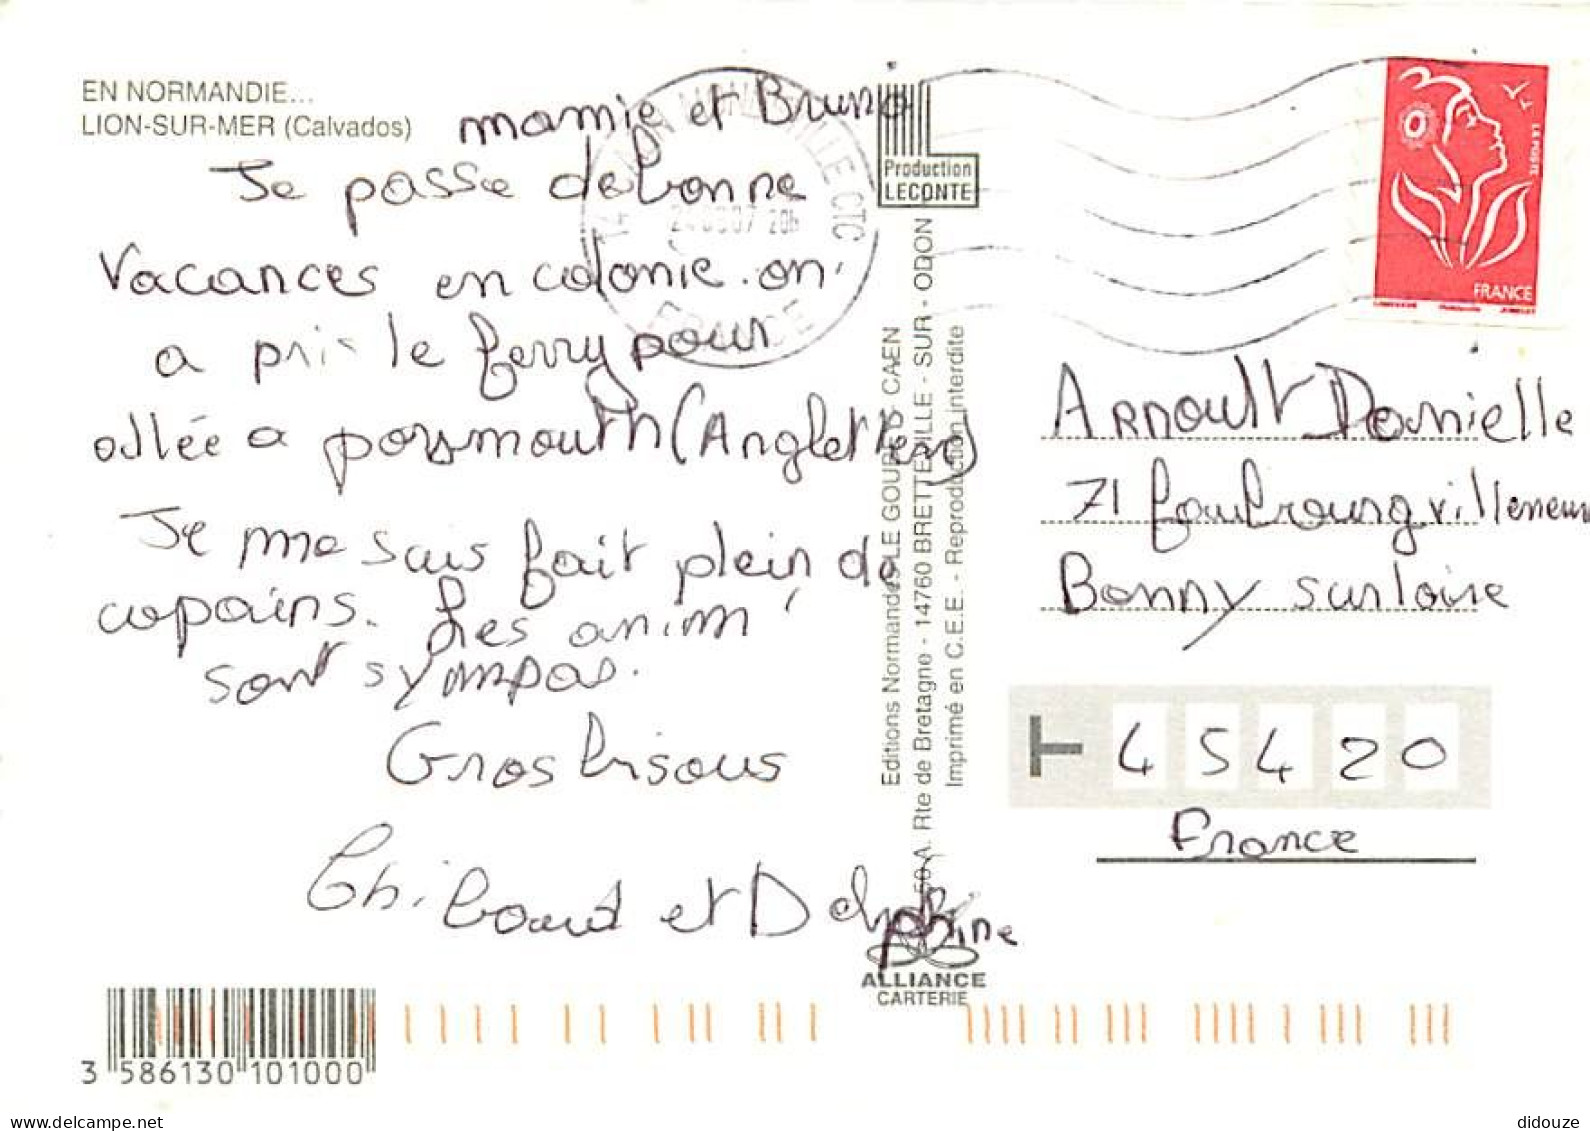 EN NORMANDIE...
LION-SUR-MER (Calvados)
mamie et Bruno
Je passe de bonne
Vacances en colonie. on
a pris le ferry pour
allée a porsmouth (Angletterre)
Je me suis fait plein de
copains. Les anim'
sont sympas.
Gros bisous
Thibault et Delphine
Production
LECONTE
Editions Normandes LE GOUBEY CAEN
59 A. Rte de Bretagne - 14760 BRETTEVILLE - SUR - ODON
Imprimé en C.E.E. - Reproduction interdite
ALLIANCE
CARTERIE
LA POSTE
FRANCE
CTC
Arnoult Danielle
71 faubourg villeneuve
Bonny sur loire
45420
France
3 586130 101000
www.delcampe.net
didouze